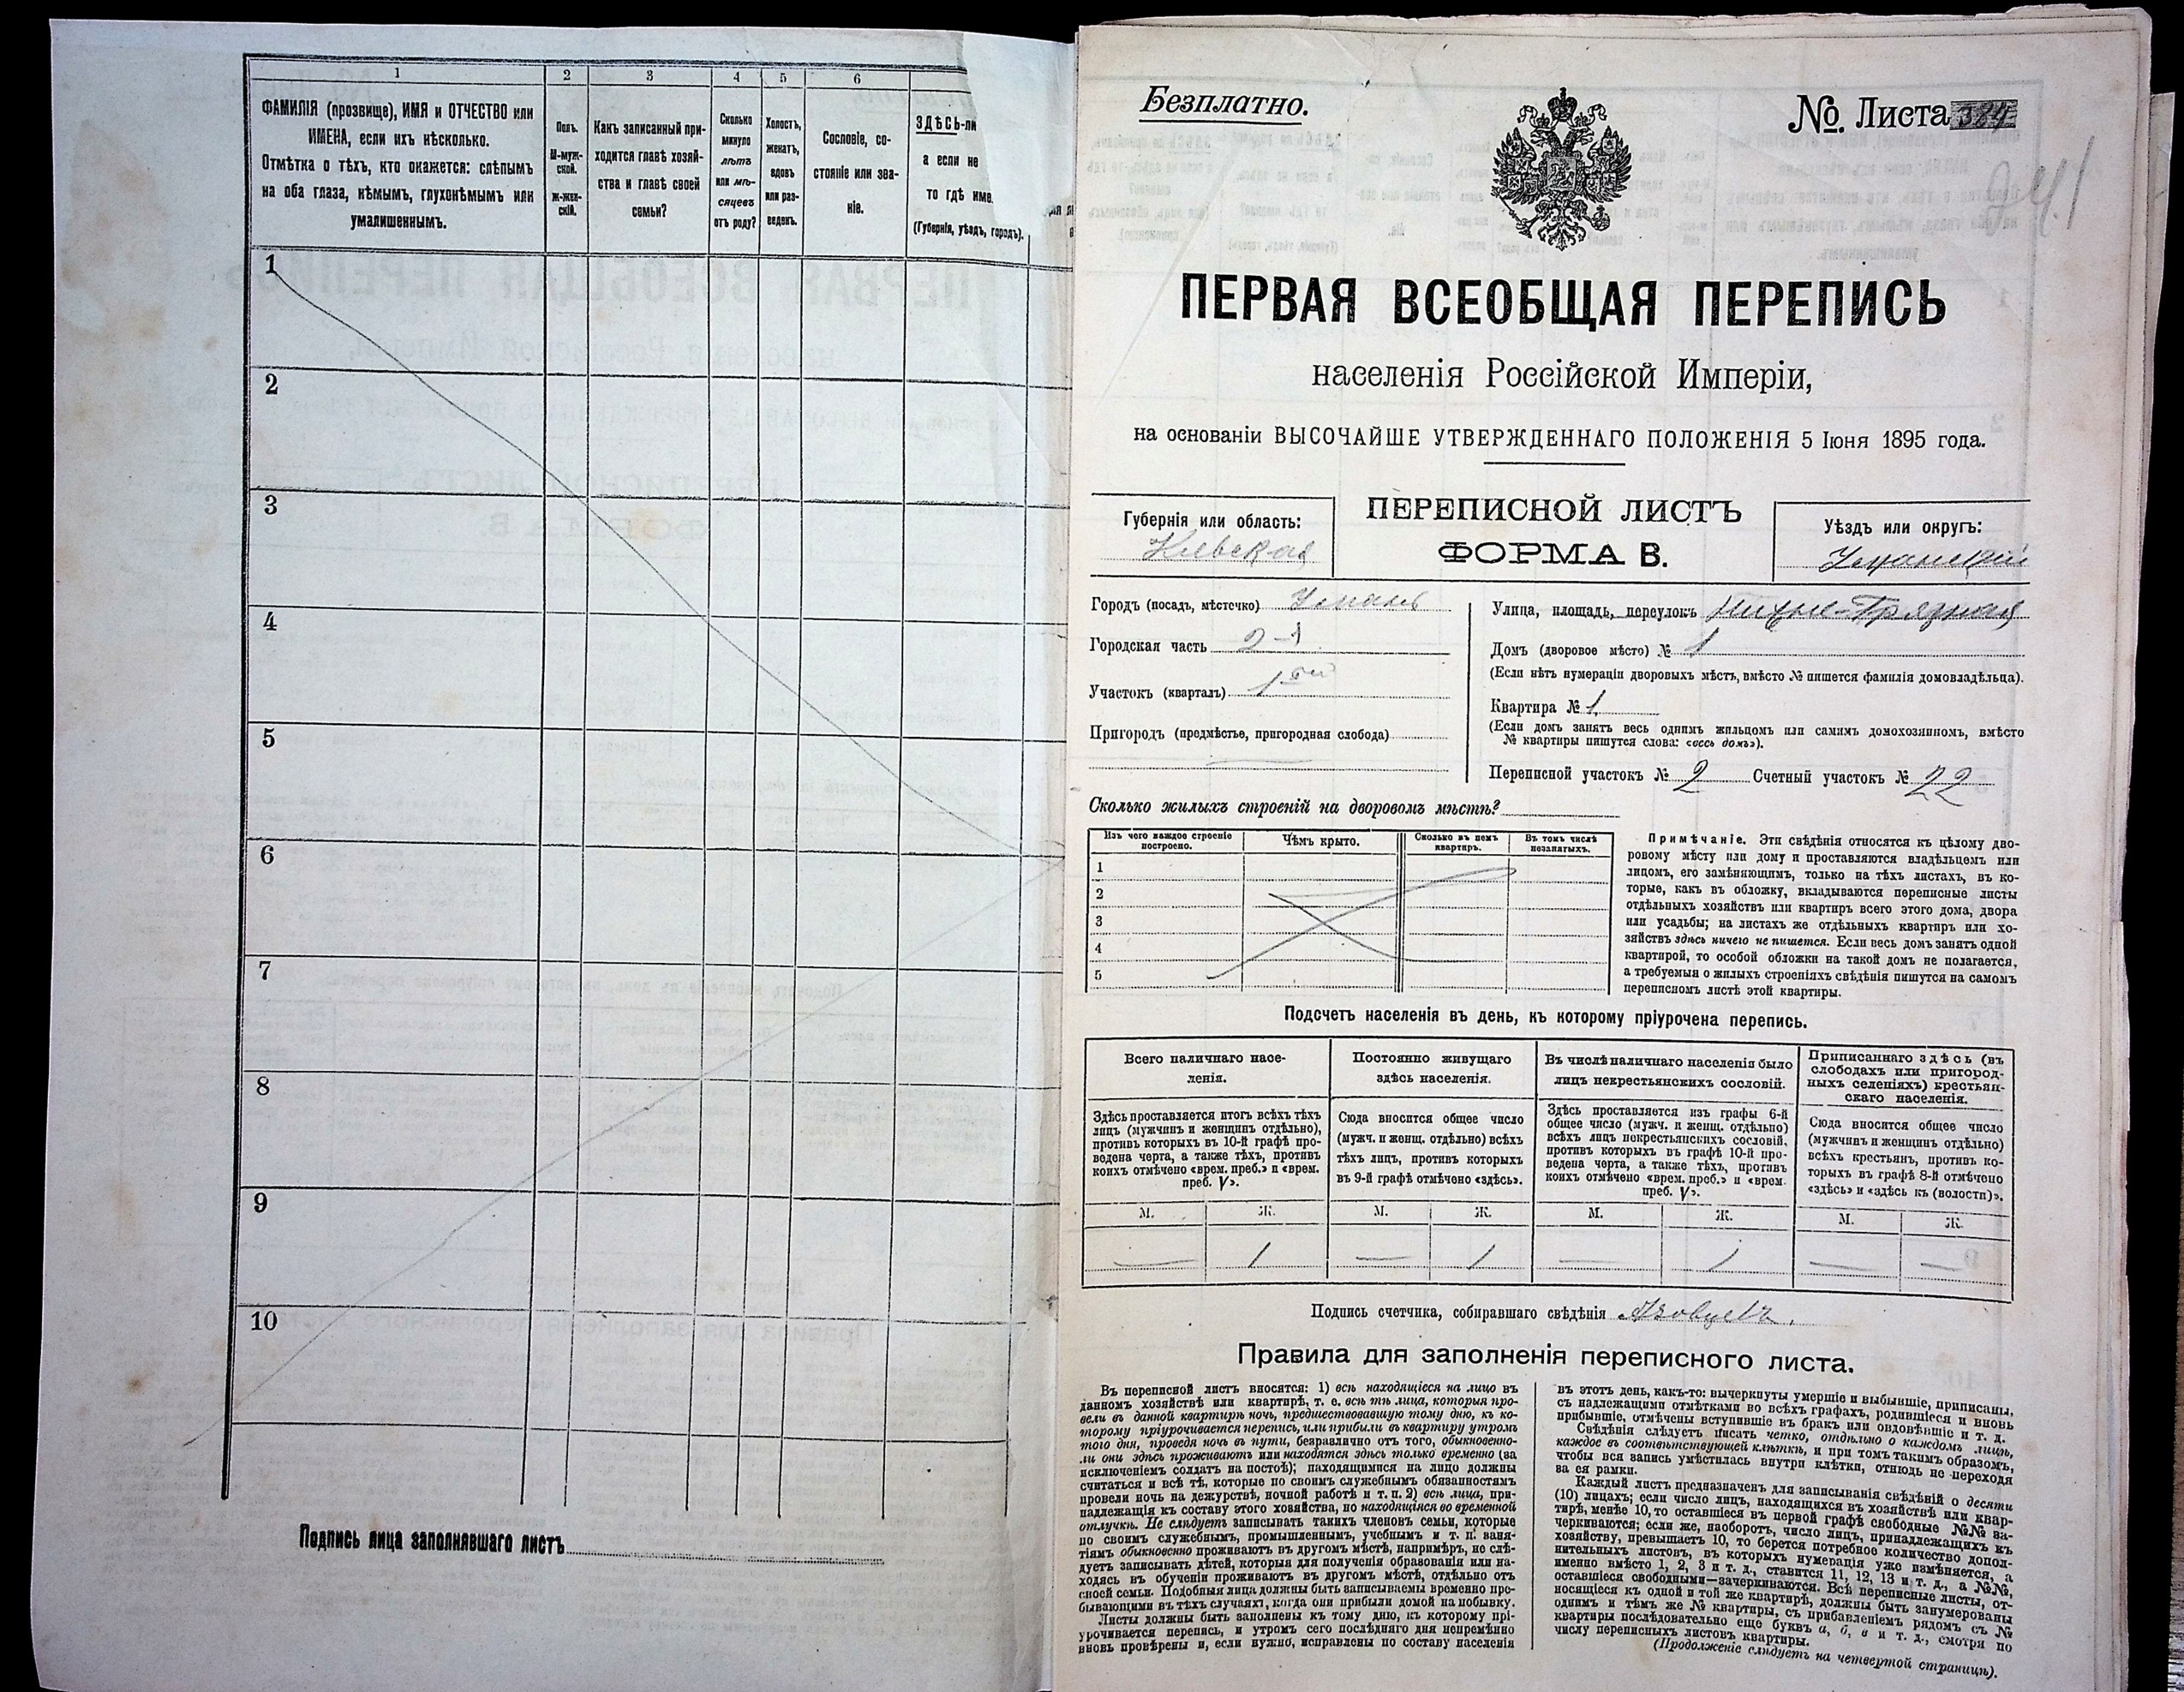 1 2 3 4 5 6
ФАМИЛІЯ (прозвище), ИМЯ и ОТЧЕСТВО или
ИМЕНА, если ихъ нѣсколько.
Отмѣтка о тѣхъ, кто окажется: слѣпымъ
на оба глаза, нѣмымъ, глухонѣмымъ или
умалишеннымъ.
Полъ.
М-муж-
ской.
Ж-жен-
скій.
Какъ записанный при-
ходится главѣ хозяй-
ства и главѣ своей
семьи?
Сколько
минуло
лѣтъ
или мѣ-
сяцевъ
отъ роду?
Холостъ,
женатъ,
вдовъ
или раз-
веденъ.
Сословіе, со-
стояніе или зва-
ніе.
ЗДѢСЬ-ли
а если не
то гдѣ име
(Губернія, уѣздъ, городъ).
1
2
3
4
5
6
7
8
9
10
Подпись лица заполнявшаго листъ
Безплатно.
№ Листа 384
ПЕРВАЯ ВСЕОБЩАЯ ПЕРЕПИСЬ
населенія Россійской Имперіи,
на основаніи ВЫСОЧАЙШЕ УТВЕРЖДЕННАГО ПОЛОЖЕНІЯ 5 Іюня 1895 года.
Губернія или область:
Кіевская
ПЕРЕПИСНОЙ ЛИСТЪ
ФОРМА В.
Уѣздъ или округъ:
Уманскій
Городъ (посадъ, мѣстечко) Умань
Городская часть 2-я
Участокъ (кварталъ) 1ый
Пригородъ (предмѣстье, пригородная слобода)
Улица, площадь, переулокъ Нижне-Грязная
Домъ (дворовое мѣсто) № 1
(Если нѣтъ нумераціи дворовыхъ мѣстъ, вмѣсто № пишется фамилія домовладѣльца).
Квартира № 1
(Если домъ занятъ весь однимъ жильцомъ или самимъ домохозяиномъ, вмѣсто
№ квартиры пишутся слова: «весь домъ»).
Переписной участокъ № 2 Счетный участокъ № 22
Сколько жилыхъ строеній на дворовомъ мѣстѣ?
Изъ чего каждое строеніе
построено.
Чѣмъ крыто.
Сколько въ немъ
квартиръ.
Въ томъ числѣ
незанятыхъ.
1
2
3
4
5
Примѣчаніе. Эти свѣдѣнія относятся къ цѣлому дво-
ровому мѣсту или дому и проставляются владѣльцемъ или
лицомъ, его замѣняющимъ, только на тѣхъ листахъ, въ ко-
торые, какъ въ обложку, вкладываются переписные листы
отдѣльныхъ хозяйствъ или квартиръ всего этого дома, двора
или усадьбы; на листахъ же отдѣльныхъ квартиръ или хо-
зяйствъ здѣсь ничего не пишется. Если весь домъ занятъ одной
квартирой, то особой обложки на такой домъ не полагается,
а требуемыя о жилыхъ строеніяхъ свѣдѣнія пишутся на самомъ
переписномъ листѣ этой квартиры.
Подсчетъ населенія въ день, къ которому пріурочена перепись.
Всего наличнаго насе-
ленія.
Здѣсь проставляется итогъ всѣхъ тѣхъ
лицъ (мужчинъ и женщинъ отдѣльно),
противъ которыхъ въ 10-й графѣ про-
ведена черта, а также тѣхъ, противъ
коихъ отмѣчено «врем. преб.» и «врем.
преб. V».
Постоянно живущаго
здѣсь населенія.
Сюда вносится общее число
(мужч. и женщ. отдѣльно) всѣхъ
тѣхъ лицъ, противъ которыхъ
въ 9-й графѣ отмѣчено «здѣсь».
Въ числѣ наличнаго населенія было
лицъ некрестьянскихъ сословій.
Здѣсь проставляется изъ графы 6-й
общее число (мужч. и женщ. отдѣльно)
всѣхъ лицъ некрестьянскихъ сословій,
противъ которыхъ въ графѣ 10-й про-
ведена черта, а также тѣхъ, противъ
коихъ отмѣчено «врем. преб.» и «врем.
преб. V».
Приписаннаго здѣсь (въ
слободахъ или пригород-
ныхъ селеніяхъ) крестьян-
скаго населенія.
Сюда вносится общее число
(мужчинъ и женщинъ отдѣльно)
всѣхъ крестьянъ, противъ ко-
торыхъ въ графѣ 8-й отмѣчено
«здѣсь» и «здѣсь къ (волости)».
М. Ж. М. Ж. М. Ж. М. Ж.
— 1 — 1 — 1 — —
Подпись счетчика, собиравшаго свѣдѣнія
Правила для заполненія переписного листа.
Въ переписной листъ вносятся: 1) всѣ находящіеся на лицо въ
данномъ хозяйствѣ или квартирѣ, т. е. всѣ тѣ лица, которыя про-
вели въ данной квартирѣ ночь, предшествовавшую тому дню, къ ко-
торому пріурочивается перепись, или прибыли въ квартиру утромъ
того дня, проведя ночь въ пути, безразлично отъ того, обыкновенно-
ли они здѣсь проживаютъ или находятся здѣсь только временно (за
исключеніемъ солдатъ на постоѣ); находящимися на лицо должны
считаться и всѣ тѣ, которые по своимъ служебнымъ обязанностямъ
провели ночь на дежурствѣ, ночной работѣ и т. п. 2) всѣ лица, при-
надлежащія къ составу этого хозяйства, но находящіяся во временной
отлучкѣ. Не слѣдуетъ записывать такихъ членовъ семьи, которые
по своимъ служебнымъ, промышленнымъ, учебнымъ и т. п. заня-
тіямъ обыкновенно проживаютъ въ другомъ мѣстѣ, напримѣръ, не слѣ-
дуетъ записывать дѣтей, которыя для полученія образованія или на-
ходясь въ обученіи проживаютъ въ другомъ мѣстѣ, отдѣльно отъ
своей семьи. Подобныя лица должны быть записываемы временно пре-
бывающими въ тѣхъ случаяхъ, когда они прибыли домой на побывку.
Листы должны быть заполнены къ тому дню, къ которому прі-
урочивается перепись, и утромъ сего послѣдняго дня непремѣнно
вновь провѣрены и, если нужно, исправлены по составу населенія
въ этотъ день, какъ-то: вычеркнуты умершіе и выбывшіе, приписаны,
съ надлежащими отмѣтками во всѣхъ графахъ, родившіеся и вновь
прибывшіе, отмѣчены вступившіе въ бракъ или овдовѣвшіе и т. д.
Свѣдѣнія слѣдуетъ писать четко, отдѣльно о каждомъ лицѣ,
каждое въ соотвѣтствующей клѣткѣ, и при томъ такимъ образомъ,
чтобы вся запись умѣстилась внутри клѣтки, отнюдь не переходя
за ея рамки.
Каждый листъ предназначенъ для записыванія свѣдѣній о десяти
(10) лицахъ; если число лицъ, находящихся въ хозяйствѣ или квар-
тирѣ, менѣе 10, то оставшіеся въ первой графѣ свободные №№ за-
черкиваются; если же, наоборотъ, число лицъ, принадлежащихъ къ
хозяйству, превышаетъ 10, то берется потребное количество допол-
нительныхъ листовъ, въ которыхъ нумерація уже измѣняется, а
именно вмѣсто 1, 2, 3 и т. д., ставится 11, 12, 13 и т. д., а №№,
оставшіеся свободными—зачеркиваются. Всѣ переписные листы, от-
носящіеся къ одной и той же квартирѣ, должны быть занумерованы
однимъ и тѣмъ же № квартиры, съ прибавленіемъ рядомъ съ №
квартиры послѣдовательно еще буквъ а, б, в и т. д., смотря по
числу переписныхъ листовъ квартиры.
(Продолженіе слѣдуетъ на четвертой страницѣ).